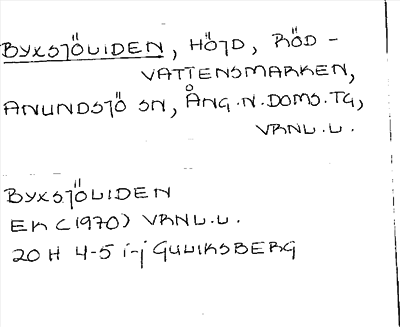 BYXSJÖLIDEN, HÖJD, RÖD-
VATTENSMARKEN,
ANUNDSJÖ SN, ÅNG.N.DOMS.TG,
VRNL.L.
BYXSJÖLIDEN
EK (1970) VRNL.L.
20 H 4-5 i-j GULIKSBERG